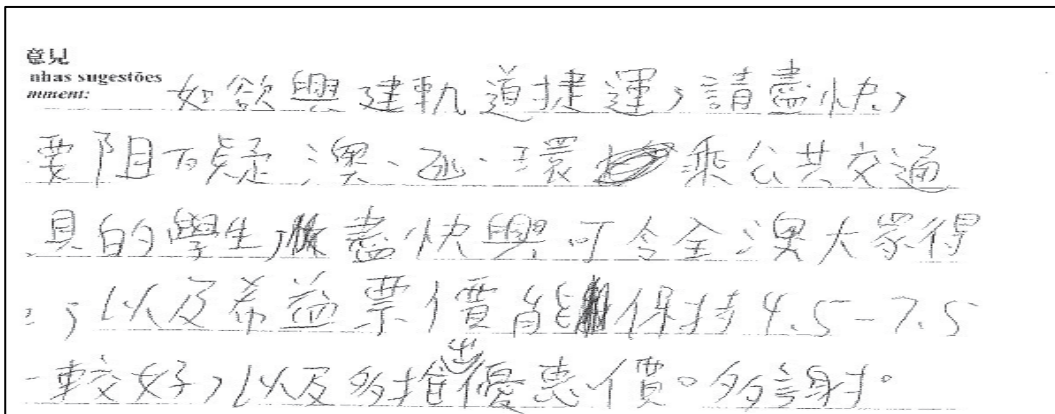 意見
nhas sugestões
mment:
如欲興建軌道捷運，請盡快，
要阻石疑澳、氹、環乘公共交通
具的學生，盡快興可令全澳大眾得
，以及希益票價能保持4.5-7.5
較好，以及多推出優惠價。多謝。